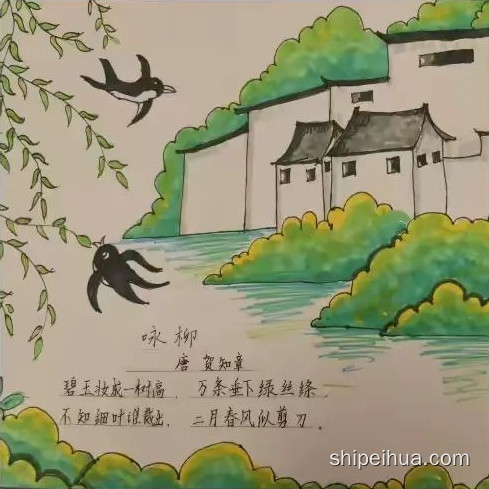 咏柳
唐 贺知章
碧玉妆成一树高，万条垂下绿丝绦，
不知细叶谁裁出，二月春风似剪刀。
shipeihua.com